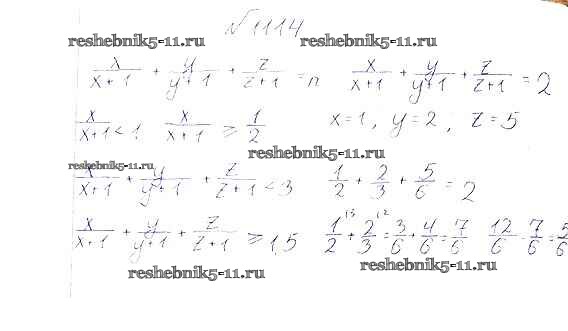 №1114
reshebnik5-11.ru reshebnik5-11.ru
x/(x+1) + y/(y+1) + z/(z+1) = n x/(x+1) + y/(y+1) + z/(z+1) = 2
x/(x+1) < 1, x/(x+1) ≥ 1/2 x=1, y=2; z=5
reshebnik5-11.ru
reshebnik5-11.ru
x/(x+1) + y/(y+1) + z/(z+1) < 3 1/2 + 2/3 + 5/6 = 2
x/(x+1) + y/(y+1) + z/(z+1) ≥ 1,5 1/2 + 2/3 = 3/6 + 4/6 = 7/6 12/6 - 7/6 = 5/6
reshebnik5-11.ru reshebnik5-11.ru